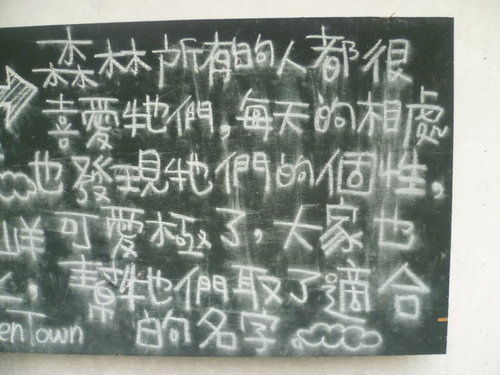 森林所有的人都很
喜愛牠們,每天的相處
也發現牠們的個性,
可愛極了,大家也
幫牠們取了適合
enTown 的名字